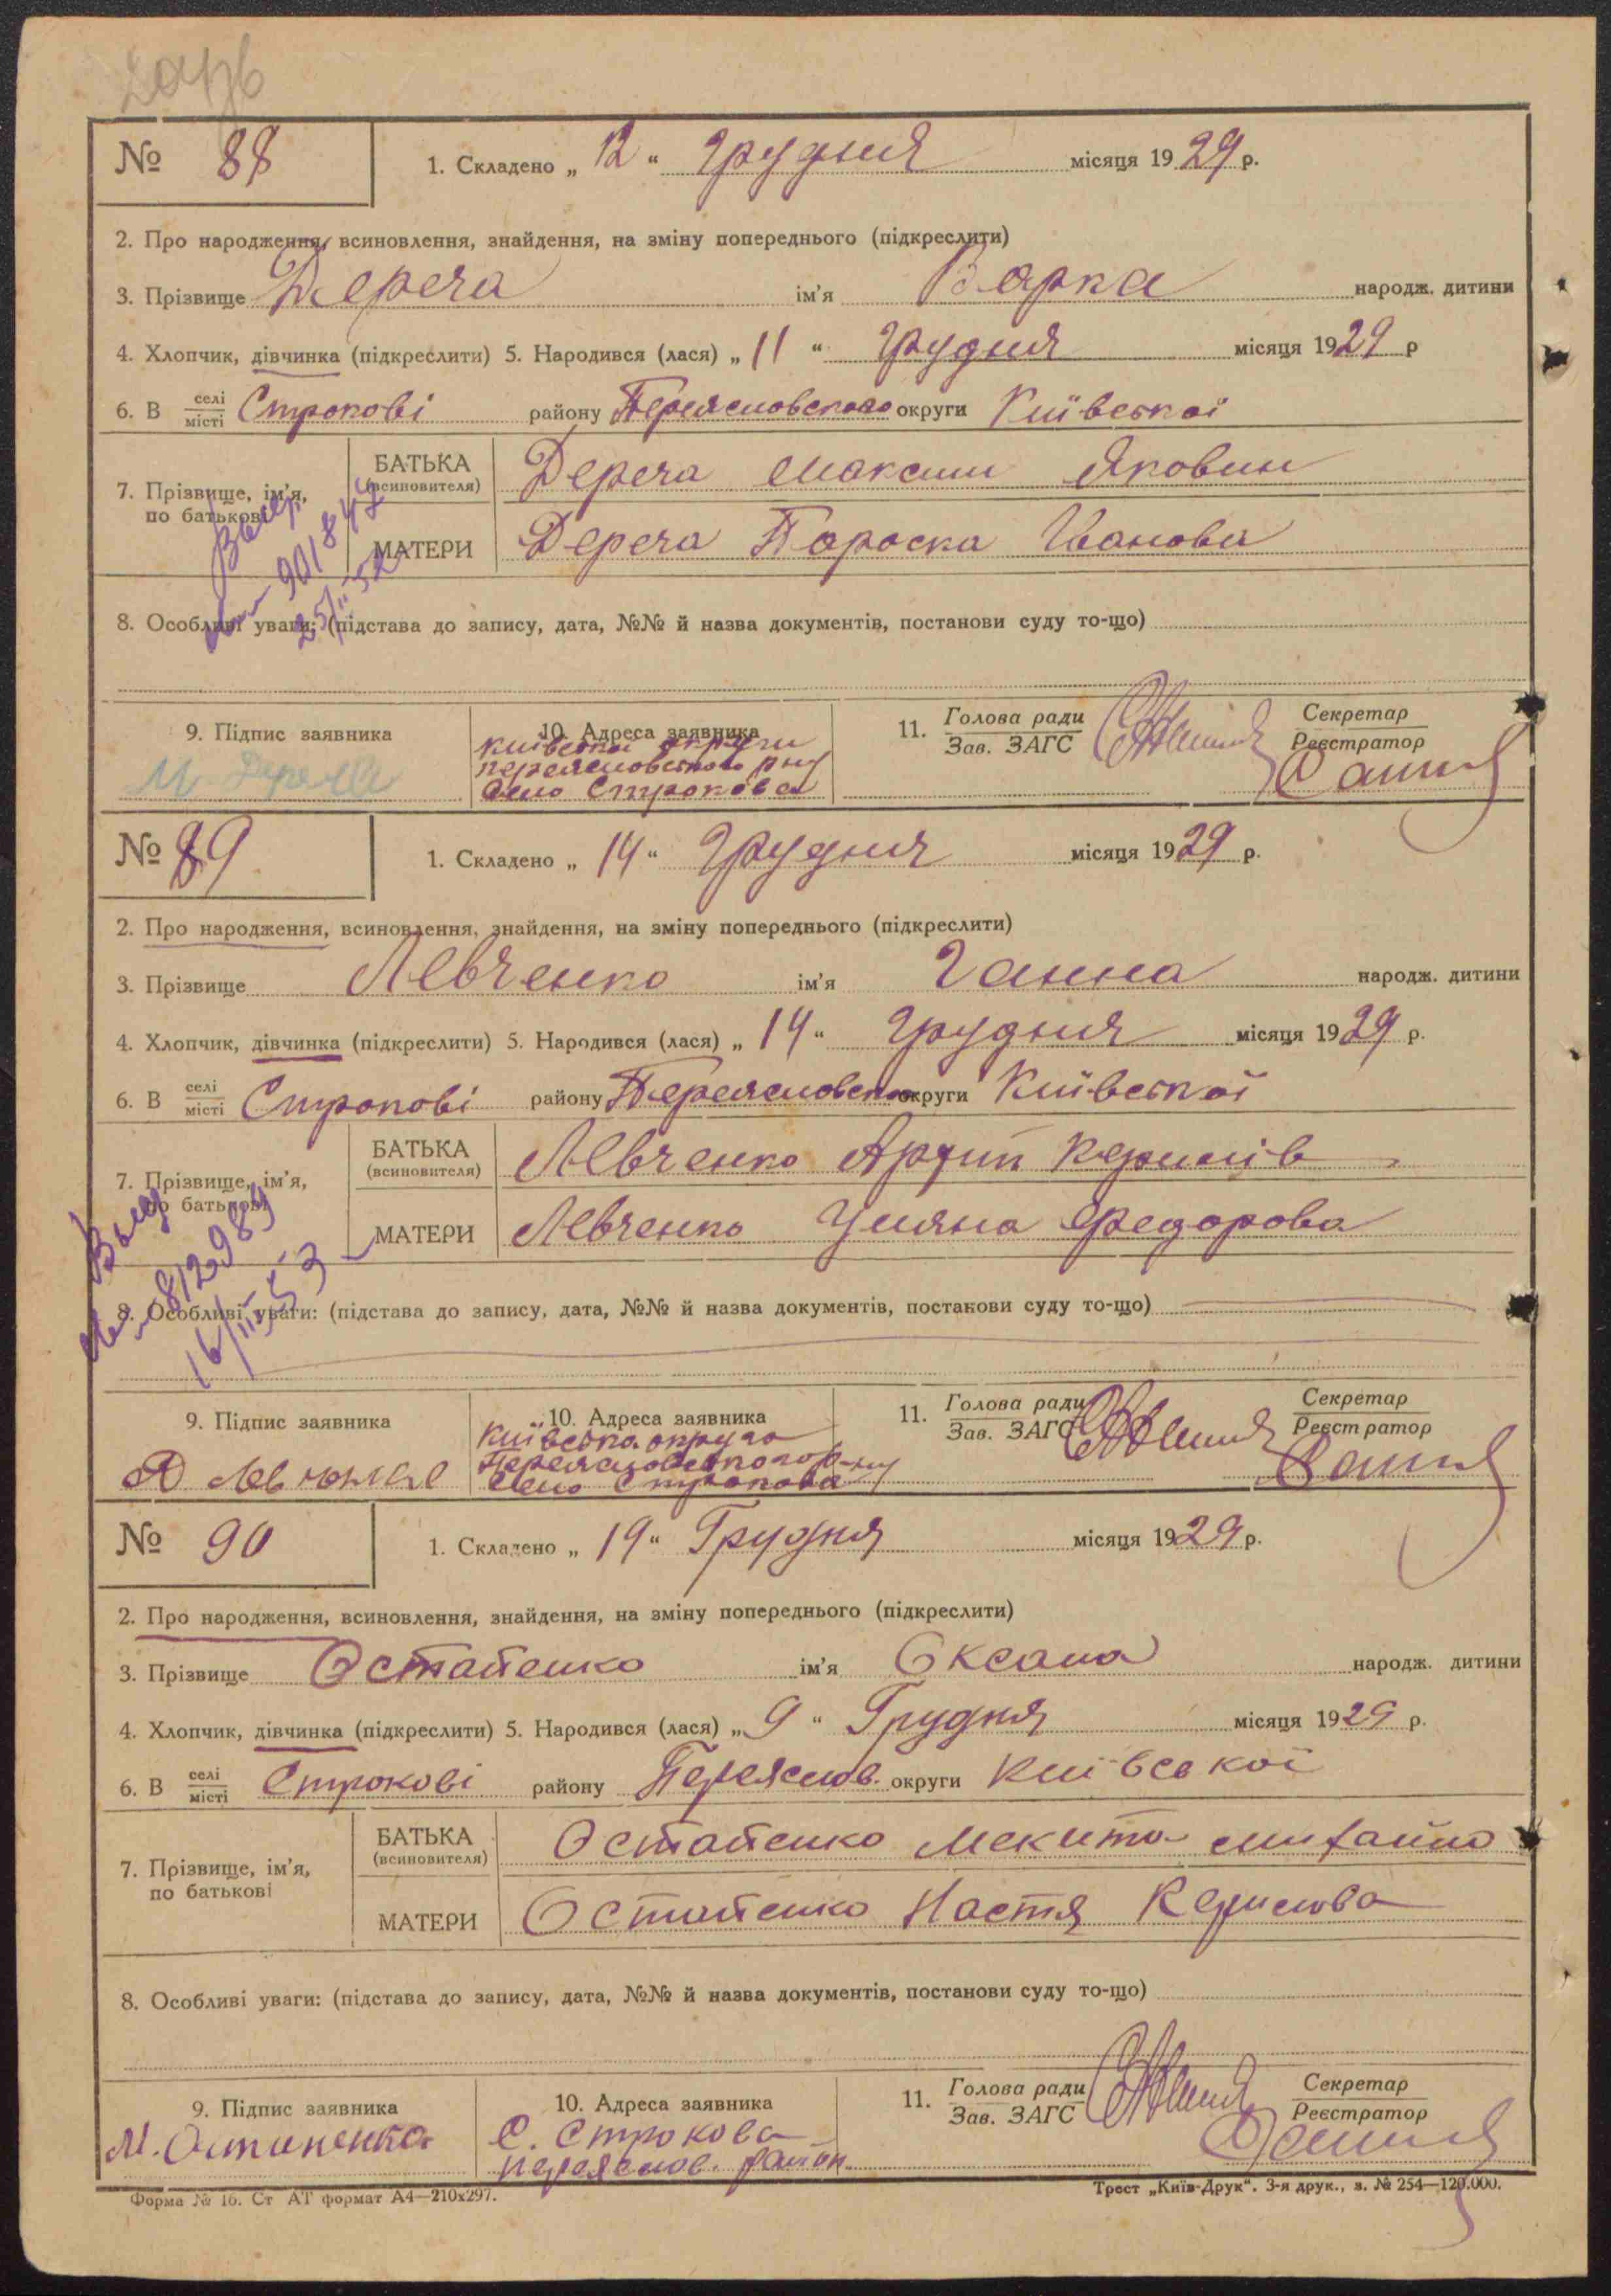 № 88
1. Складено „ 12 “ грудня місяця 1929 р.
2. Про народження, всиновлення, знайдення, на зміну попереднього (підкреслити)
3. Прізвище Дереча ім'я Варка народж. дитини
4. Хлопчик, дівчинка (підкреслити) 5. Народився (лася) „ 11 “ грудня місяця 1929 р
6. В селі місті Строкові району Переясловского округи Київської
7. Прізвище, ім'я, по батькові
БАТЬКА (всиновителя) Дереча Максим Яковин
МАТЕРИ Дереча Параска Иванова
901847
25/II 52
8. Особливі уваги: (підстава до запису, дата, №№ й назва документів, постанови суду то-що)
9. Підпис заявника
М Дереча
10. Адреса заявника
Київської округи
переясловського р-ну
село Строкова
11. Голова ради
Зав. ЗАГС
Секретар
Реєстратор
№ 89
1. Складено „ 14 “ грудня місяця 1929 р.
2. Про народження, всиновлення, знайдення, на зміну попереднього (підкреслити)
3. Прізвище Левченко ім'я Ганна народж. дитини
4. Хлопчик, дівчинка (підкреслити) 5. Народився (лася) „ 14 “ грудня місяця 1929 р.
6. В селі місті Строкові району Переясловско округи Київської
7. Прізвище, ім'я, по батькові
БАТЬКА (всиновителя) Левченко
МАТЕРИ Левченко Уляна Федорова
812989
16/III 53
8. Особливі уваги: (підстава до запису, дата, №№ й назва документів, постанови суду то-що)
9. Підпис заявника
10. Адреса заявника
Київська округа
Переясловського р-ну
село Строкова
11. Голова ради
Зав. ЗАГС
Секретар
Реєстратор
№ 90
1. Складено „ 19 “ Грудня місяця 1929 р.
2. Про народження, всиновлення, знайдення, на зміну попереднього (підкреслити)
3. Прізвище Остапенко ім'я Оксана народж. дитини
4. Хлопчик, дівчинка (підкреслити) 5. Народився (лася) „ 9 “ Грудня місяця 1929 р.
6. В селі місті Строкові району Переяслов. округи Київської
7. Прізвище, ім'я, по батькові
БАТЬКА (всиновителя) Остапенко Мекита михайло
МАТЕРИ Остапенко Настя Керилова
8. Особливі уваги: (підстава до запису, дата, №№ й назва документів, постанови суду то-що)
9. Підпис заявника
М. Остапенко
10. Адреса заявника
С. Строкова
переяслов. район.
11. Голова ради
Зав. ЗАГС
Секретар
Реєстратор
Форма № 16. Ст АТ формат А4—210х297.
Трест „Київ-Друк“. 3-я друк., з. № 254—120.000.